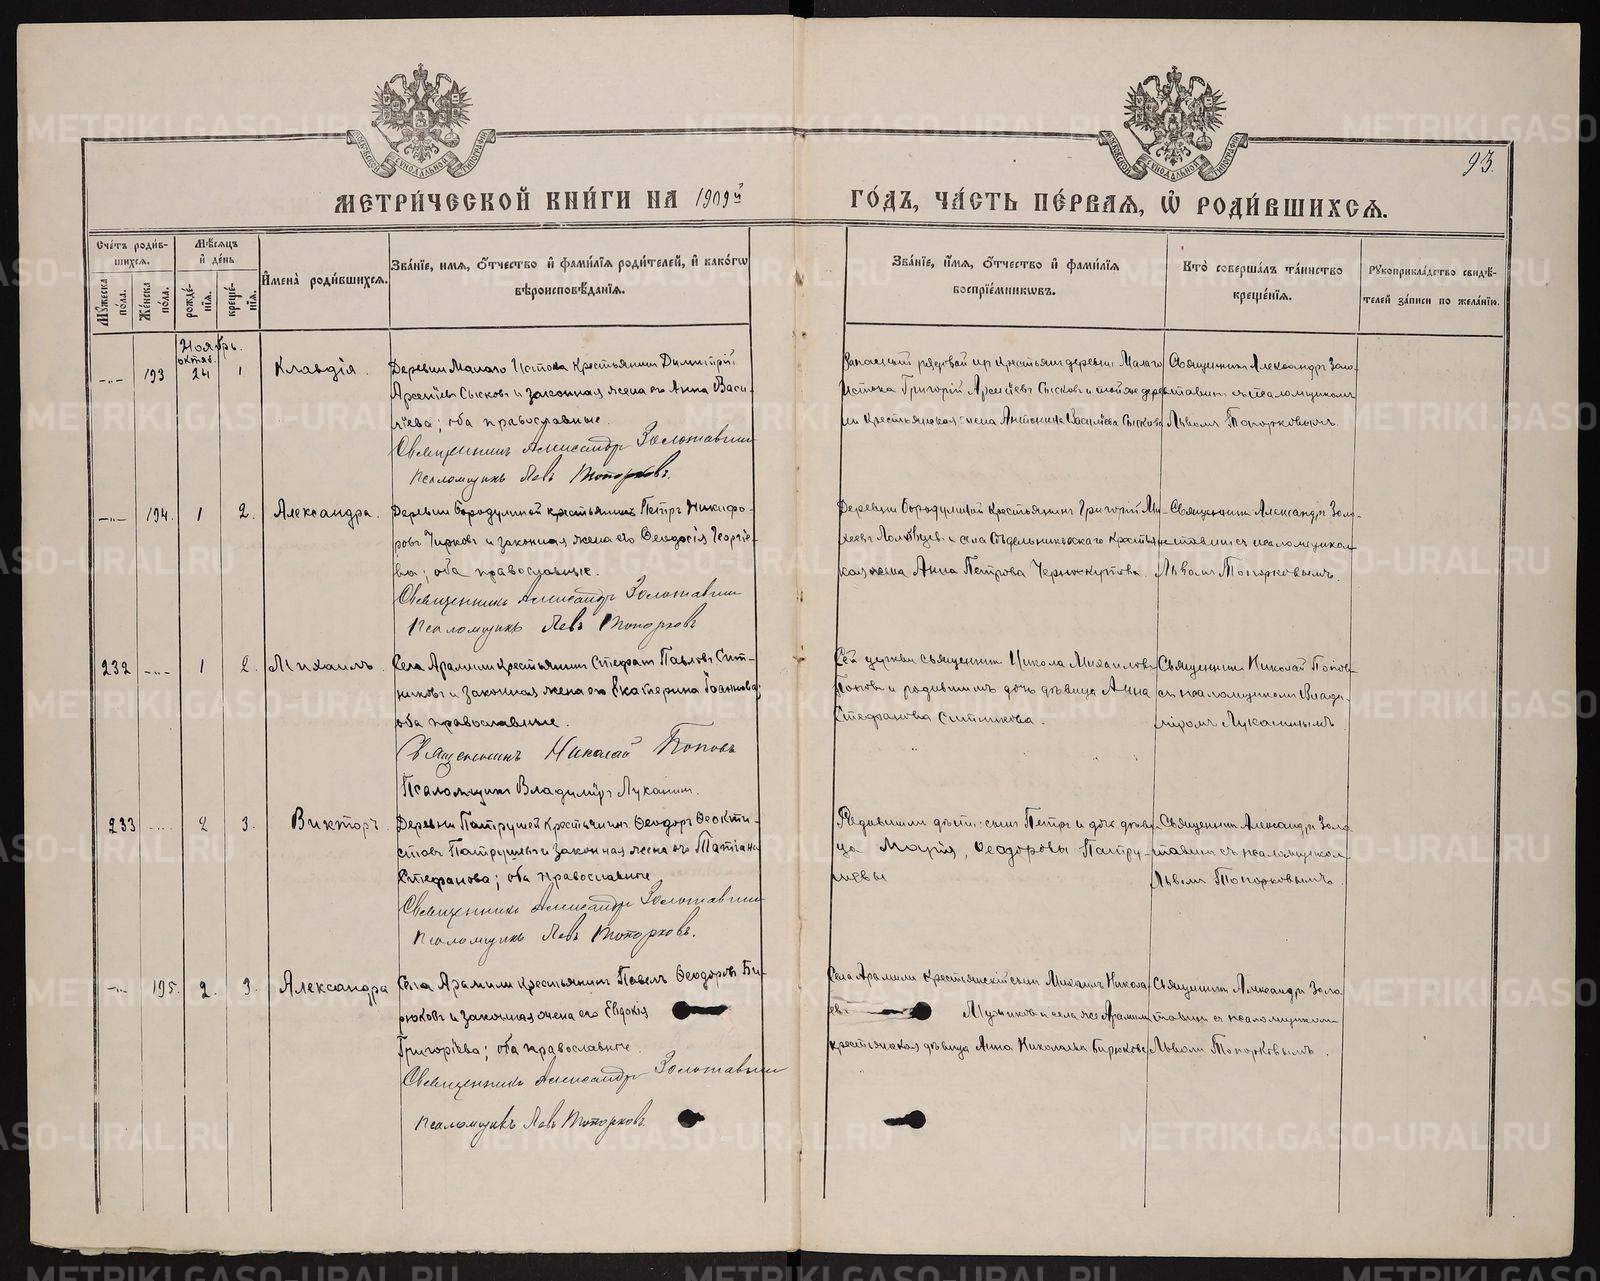 93.
МЕТРИ́ЧЕСКОЙ КНИ́ГИ НА 1909й ГО́ДЪ, ЧА́СТЬ ПЕ́РВАЯ, Ѡ҆ РОДИ́ВШИХСЯ.
Сче́тъ роди́в-
шихся.
Мѣ́сяцъ
и҆ де́нь
Мꙋ́жеска по́ла.
Же́нска по́ла.
рожде́-
нїя.
креще́-
нїя.
И҆мена̀ роди́вшихся.
Зва́нїе, и҆мя, ѻ҆́тчество и҆ фами́лїя роди́телей, и҆ како́гѡ
вѣроисповѣ́данїя.
Зва́нїе, и҆́мя, ѻ҆́тчество и҆ фами́лїя
воспрїе́мникѡвъ.
Кто̀ соверша́лъ та́инство
креще́нїя.
Рꙋкоприкла́дство свидѣ́-
телей за́писи по жела́нїю.
Ноябрь.
октяб.
-"- 193 24 1 Клавдія.
Деревни Малаго Истока крестьянинъ Димитрій
Арсеніевъ Сысковъ и законная жена его Анна Васи-
ліева; оба православные.
Священникъ Александръ Золотавинъ
Псаломщикъ Левъ Топорковъ.
Запасный рядовой изъ крестьянъ деревни Малаго
Истока Григорій Арсеніевъ Сысковъ и той же дерев-
ни крестьянская жена Антонина Василіева Сыскова
Священникъ Александръ Золо-
тавинъ съ псаломщикомъ
Львомъ Топорковымъ.
-"- 194. 1 2. Александра.
Деревни Бородулиной крестьянинъ Петръ Никифо-
ровъ Чирковъ и законная жена его Ѳеодосія Георгіе-
ва; оба православные.
Священникъ Александръ Золотавинъ
Псаломщикъ Левъ Топорковъ
Деревни Бородулиной крестьянинъ Григорій
и села крестьян-
ская жена Анна Петрова
Священникъ Александръ Золо-
тавинъ съ псаломщикомъ
Львомъ Топорковымъ.
232 -"- 1 2. Михаилъ.
Села Арамили крестьянинъ Стефанъ Павловъ Сит-
никовъ и законная жена его Екатерина Іоаннова;
оба православные.
Священникъ Николай Поповъ
Псаломщикъ Владиміръ Луканинъ.
Сей церкви священникъ Никола Михаиловъ
Поповъ и родившимъ дочь дѣвица Анна
Стефанова Ситникова.
Священникъ Николай Поповъ
съ псаломщикомъ Влади-
міромъ Луканинымъ
233 -"- 2 3. Викторъ.
Деревни Патрушей крестьянинъ Ѳеодоръ Ѳеокти-
стовъ Патрушевъ и законная жена его Татіана
Стефанова; оба православные
Священникъ Александръ Золотавинъ
Псаломщикъ Левъ Топорковъ.
Родившимъ дѣти: сынъ Петръ и дочь дѣви-
ца Марія, Ѳеодоровы Патру-
шевы
Священникъ Александръ Золо-
тавинъ съ псаломщикомъ
Львомъ Топорковымъ.
-"- 195. 2. 3. Александра
Села Арамили крестьянинъ Павелъ Ѳеодоровъ Би-
рюковъ и законная жена его Евдокія
Григоріева; оба православные.
Священникъ Александръ Золотавинъ
Псаломщикъ Левъ Топорковъ
Села Арамили крестьянскій сынъ Михаилъ Никола-
евъ и села же Арамили
крестьянская дѣвица Анна Николаева Бирюкова
Священникъ Александръ Золо-
тавинъ съ псаломщикомъ
Львомъ Топорковымъ.
METRIKI.GASO-URAL.RU